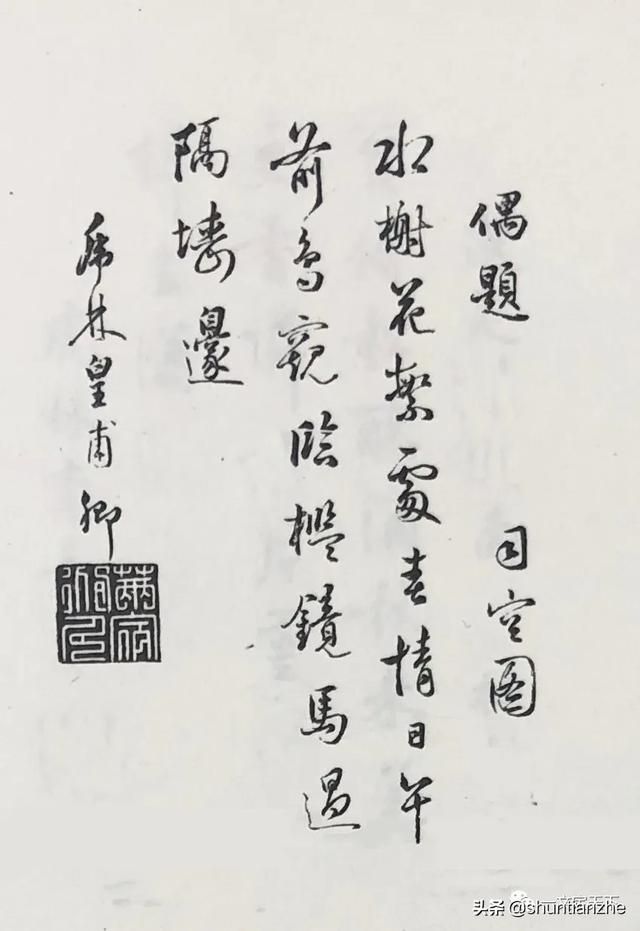 偶題 司空图
水榭花繁處春情日午
前鳥窺臨檻鏡馬過
隔墻邊
虎林皇甫卿
头条 @shuntianzhe